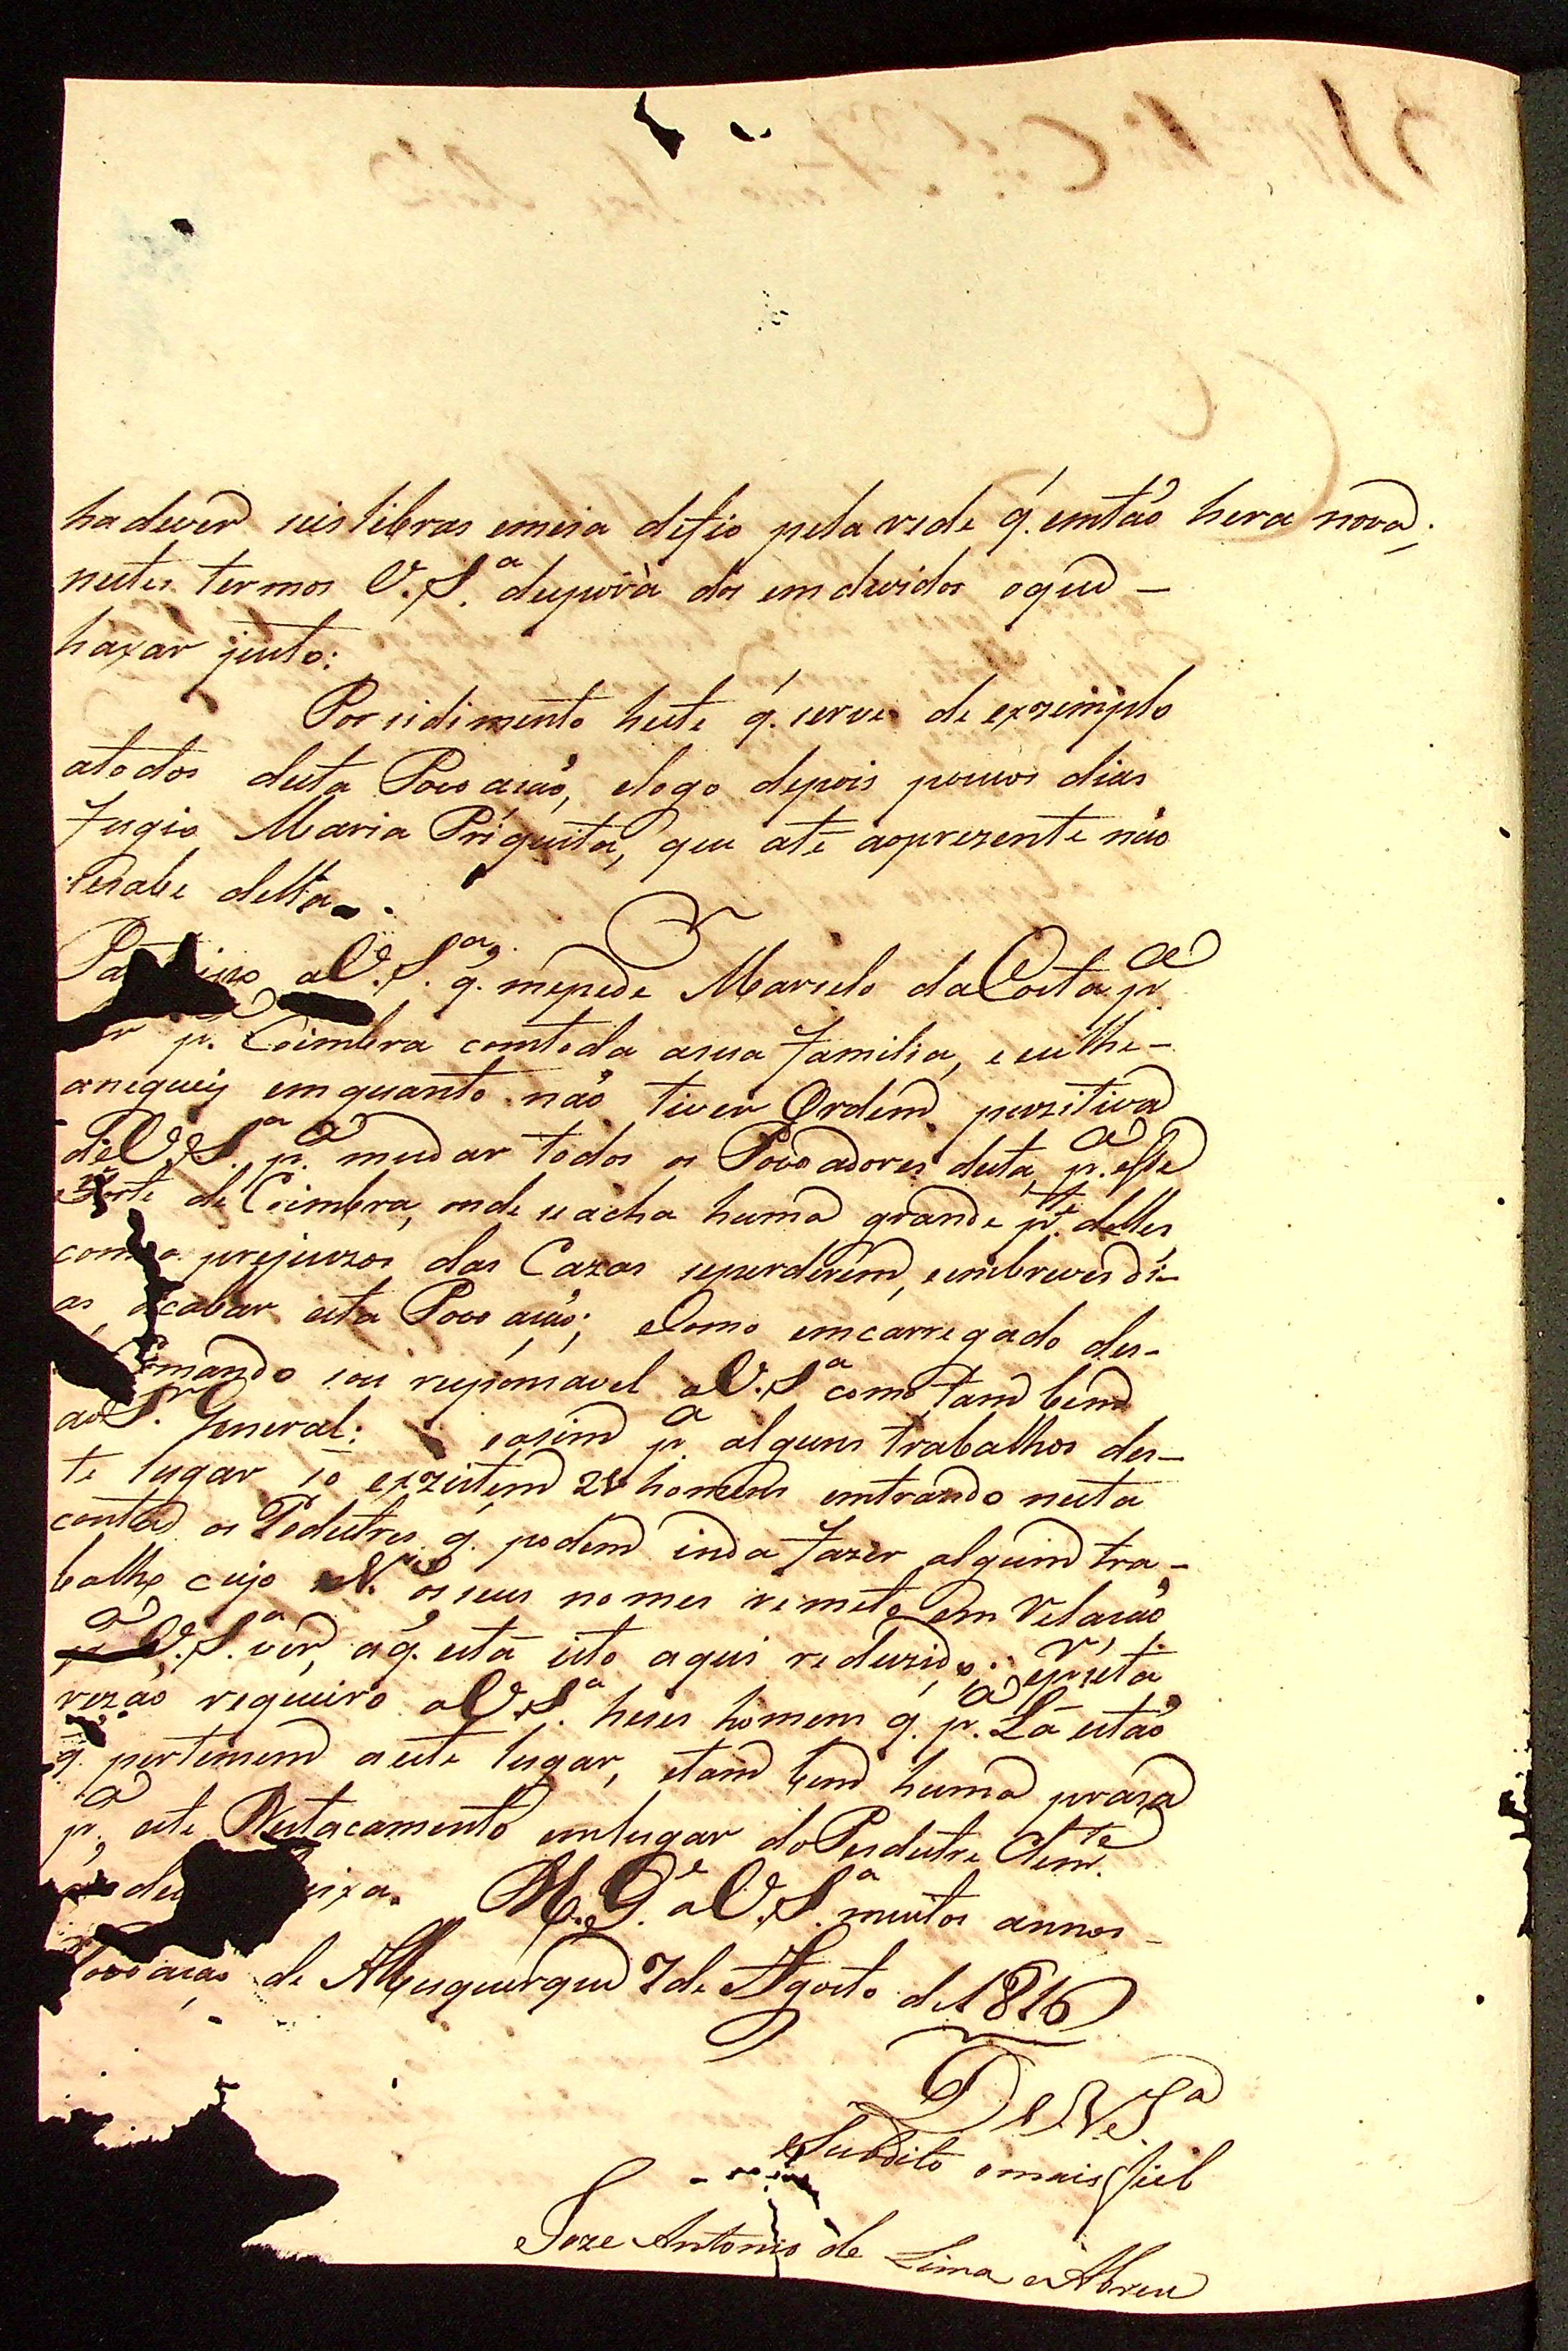 hadever seis libras emeia defio pela rede q. emtaõ hera nova;
nestes termos V. S.ª desporà dos emdividos oque
haxar justo:
Por sidimento heste q. serve de exzeimplo
atodos desta Povoacaõ, elogo depois poucos dias
fugio Maria Priquita, que até aoprezente naõ
sesabe della.
aV. S.ª, q. mepede Marselo daCosta p.ª
p.ª Coimbra comtoda asua familia, e eu lhe
aneguei emquanto naõ tiver Ordem pozitiva
deV. S.ª p.ª mudar todos os Povoadores desta, p.ª esse
Forte de Coimbra, onde seacha huma grande p.te delles,
com o prejuizos das Cazas seperderem, eembreves di-
as, acabar esta Povoacaõ; eComo emcarregado des-
Comando sou responsavel aV. S.ª como tambem
aoS.r General: easim p.ª alguns trabalhos des-
te lugar só exzistem 28 homens emtrando nesta
conta os Pedestres q. podem inda fazer algum tra-
balho cujo N.º os seus nomes remeto em relacaõ
p.ª V. S.ª ver, aq. está isto aqui reduzido: eporesta
rezaõ requeiro aV. S.ª heses homens q. p.ª Lá estaõ
q. pertensem aeste lugar, etambem huma praza
p.ª este Destacamento emlugar doPesdestre Clem.te
D.s G.e aV. S.ª muitos annos
Povoacaõ de Albuquerque 7 de Agosto de 1816
De V. S.ª
Subdito omais fiel
Joze Antonio de Lima e Abreu